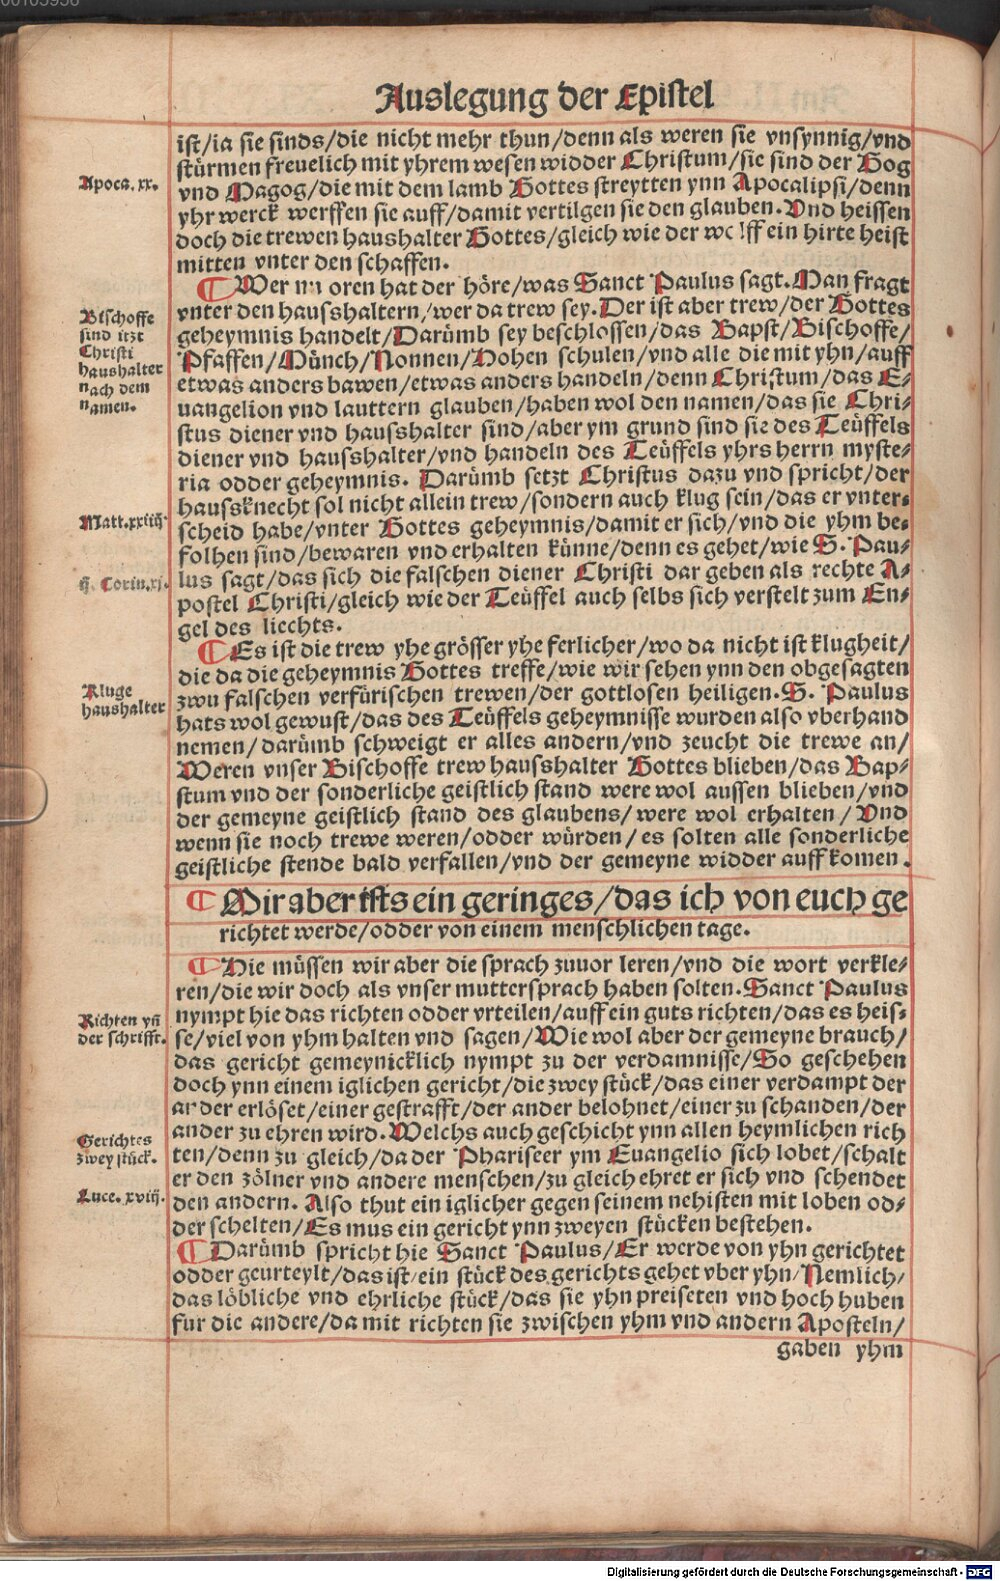 Auslegung der Epistel
ist/ia sie sinds/die nicht mehr thun/denn als weren sie vnsynnig/vnd
stürmen freuelich mit yhrem wesen widder Christum/sie sind der Gog
Apoca. xx.
vnd Magog/die mit dem lamb Gottes streytten ynn Apocalipsi/denn
yhr werck werffen sie auff/damit vertilgen sie den glauben. Vnd heissen
doch die trewen haushalter Gottes/gleich wie der wolff ein hirte heist
mitten vnter den schaffen.
¶ Wer nu oren hat der höre/was Sanct Paulus sagt. Man fragt
vnter den haushaltern/wer da trew sey. Der ist aber trew/der Gottes
geheymnis handelt/Darümb sey beschlossen/das Bapst/Bischoffe/
Pfaffen/Münch/Nonnen/Hohen schulen/vnd alle die mit yhn/auff
etwas anders bawen/etwas anders handeln/denn Christum/das E-
uangelion vnd lauttern glauben/haben wol den namen/das sie Chri-
stus diener vnd hausshalter sind/aber ym grund sind sie des Teüffels
diener vnd hausshalter/vnd handeln des Teüffels yhrs herrn myste-
ria odder geheymnis. Darümb setzt Christus dazu vnd spricht/der
haussknecht sol nicht allein trew/sondern auch klug sein/das er vnter-
scheid habe/vnter Gottes geheymnis/damit er sich/vnd die yhm be-
folhen sind/bewaren vnd erhalten künne/denn es gehet/wie S. Pau-
lus sagt/das sich die falschen diener Christi dar geben als rechte A-
postel Christi/gleich wie der Teüffel auch selbs sich verstelt zum En-
gel des liechts.
Bischoffe
sind itzt
Christi
haushalter
nach dem
namen.
Matt.xxiiij
ij. Corin.xj.
¶ Es ist die trew yhe grösser yhe ferlicher/wo da nicht ist klugheit/
die da die geheymnis Gottes treffe/wie wir sehen ynn den obgesagten
zwu falschen verfürischen trewen/der gottlosen heiligen. S. Paulus
hats wol gewust/das des Teüffels geheymnisse wurden also vberhand
nemen/darümb schweigt er alles andern/vnd zeucht die trewe an/
Weren vnser Bischoffe trew hausshalter Gottes blieben/das Bap-
stum vnd der sonderliche geistlich stand were wol aussen blieben/vnd
der gemeyne geistlich stand des glaubens/were wol erhalten/Vnd
wenn sie noch trewe weren/odder würden/es solten alle sonderliche
geistliche stende bald verfallen/vnd der gemeyne widder auff komen.
Kluge
haushalter
¶ Mir aber ists ein geringes/das ich von euch ge
richtet werde/odder von einem menschlichen tage.
¶ Hie müssen wir aber die sprach zuuor leren/vnd die wort verkle-
ren/die wir doch als vnser muttersprach haben solten. Sanct Paulus
nympt hie das richten odder vrteilen/auff ein guts richten/das es heis-
se/viel von yhm halten vnd sagen/Wie wol aber der gemeyne brauch/
das gericht gemeynicklich nympt zu der verdamnisse/So geschehen
doch ynn einem iglichen gericht/die zwey stück/das einer verdampt der
ander erlöset/einer gestrafft/der ander belohnet/einer zu schanden/der
ander zu ehren wird. Welchs auch geschicht ynn allen heymlichen rich
ten/denn zu gleich/da der Phariseer ym Euangelio sich lobet/schalt
er den zölner vnd andere menschen/zu gleich ehret er sich vnd schendet
den andern. Also thut ein iglicher gegen seinem nehisten mit loben od-
der schelten/Es mus ein gericht ynn zweyen stücken bestehen.
Richten yn̄
der schrifft.
Gerichtes
zwey stück.
Luce. xviij.
¶ Darümb spricht hie Sanct Paulus/Er werde von yhn gerichtet
odder geurteylt/das ist/ein stück des gerichts gehet vber yhn/Nemlich/
das löbliche vnd ehrliche stück/das sie yhn preiseten vnd hoch huben
fur die andere/da mit richten sie zwischen yhm vnd andern Aposteln/
gaben yhm
Digitalisierung gefördert durch die Deutsche Forschungsgemeinschaft - DFG